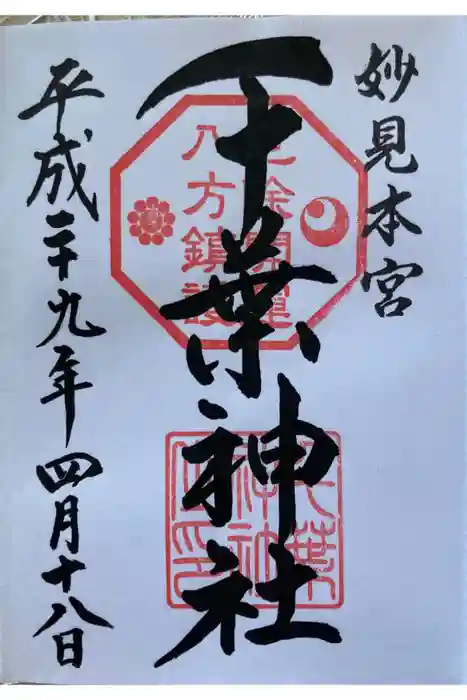 妙見本宮
千葉神社
平成二十九年四月十八日
厄除開運
八方鎮護
千葉神社之印